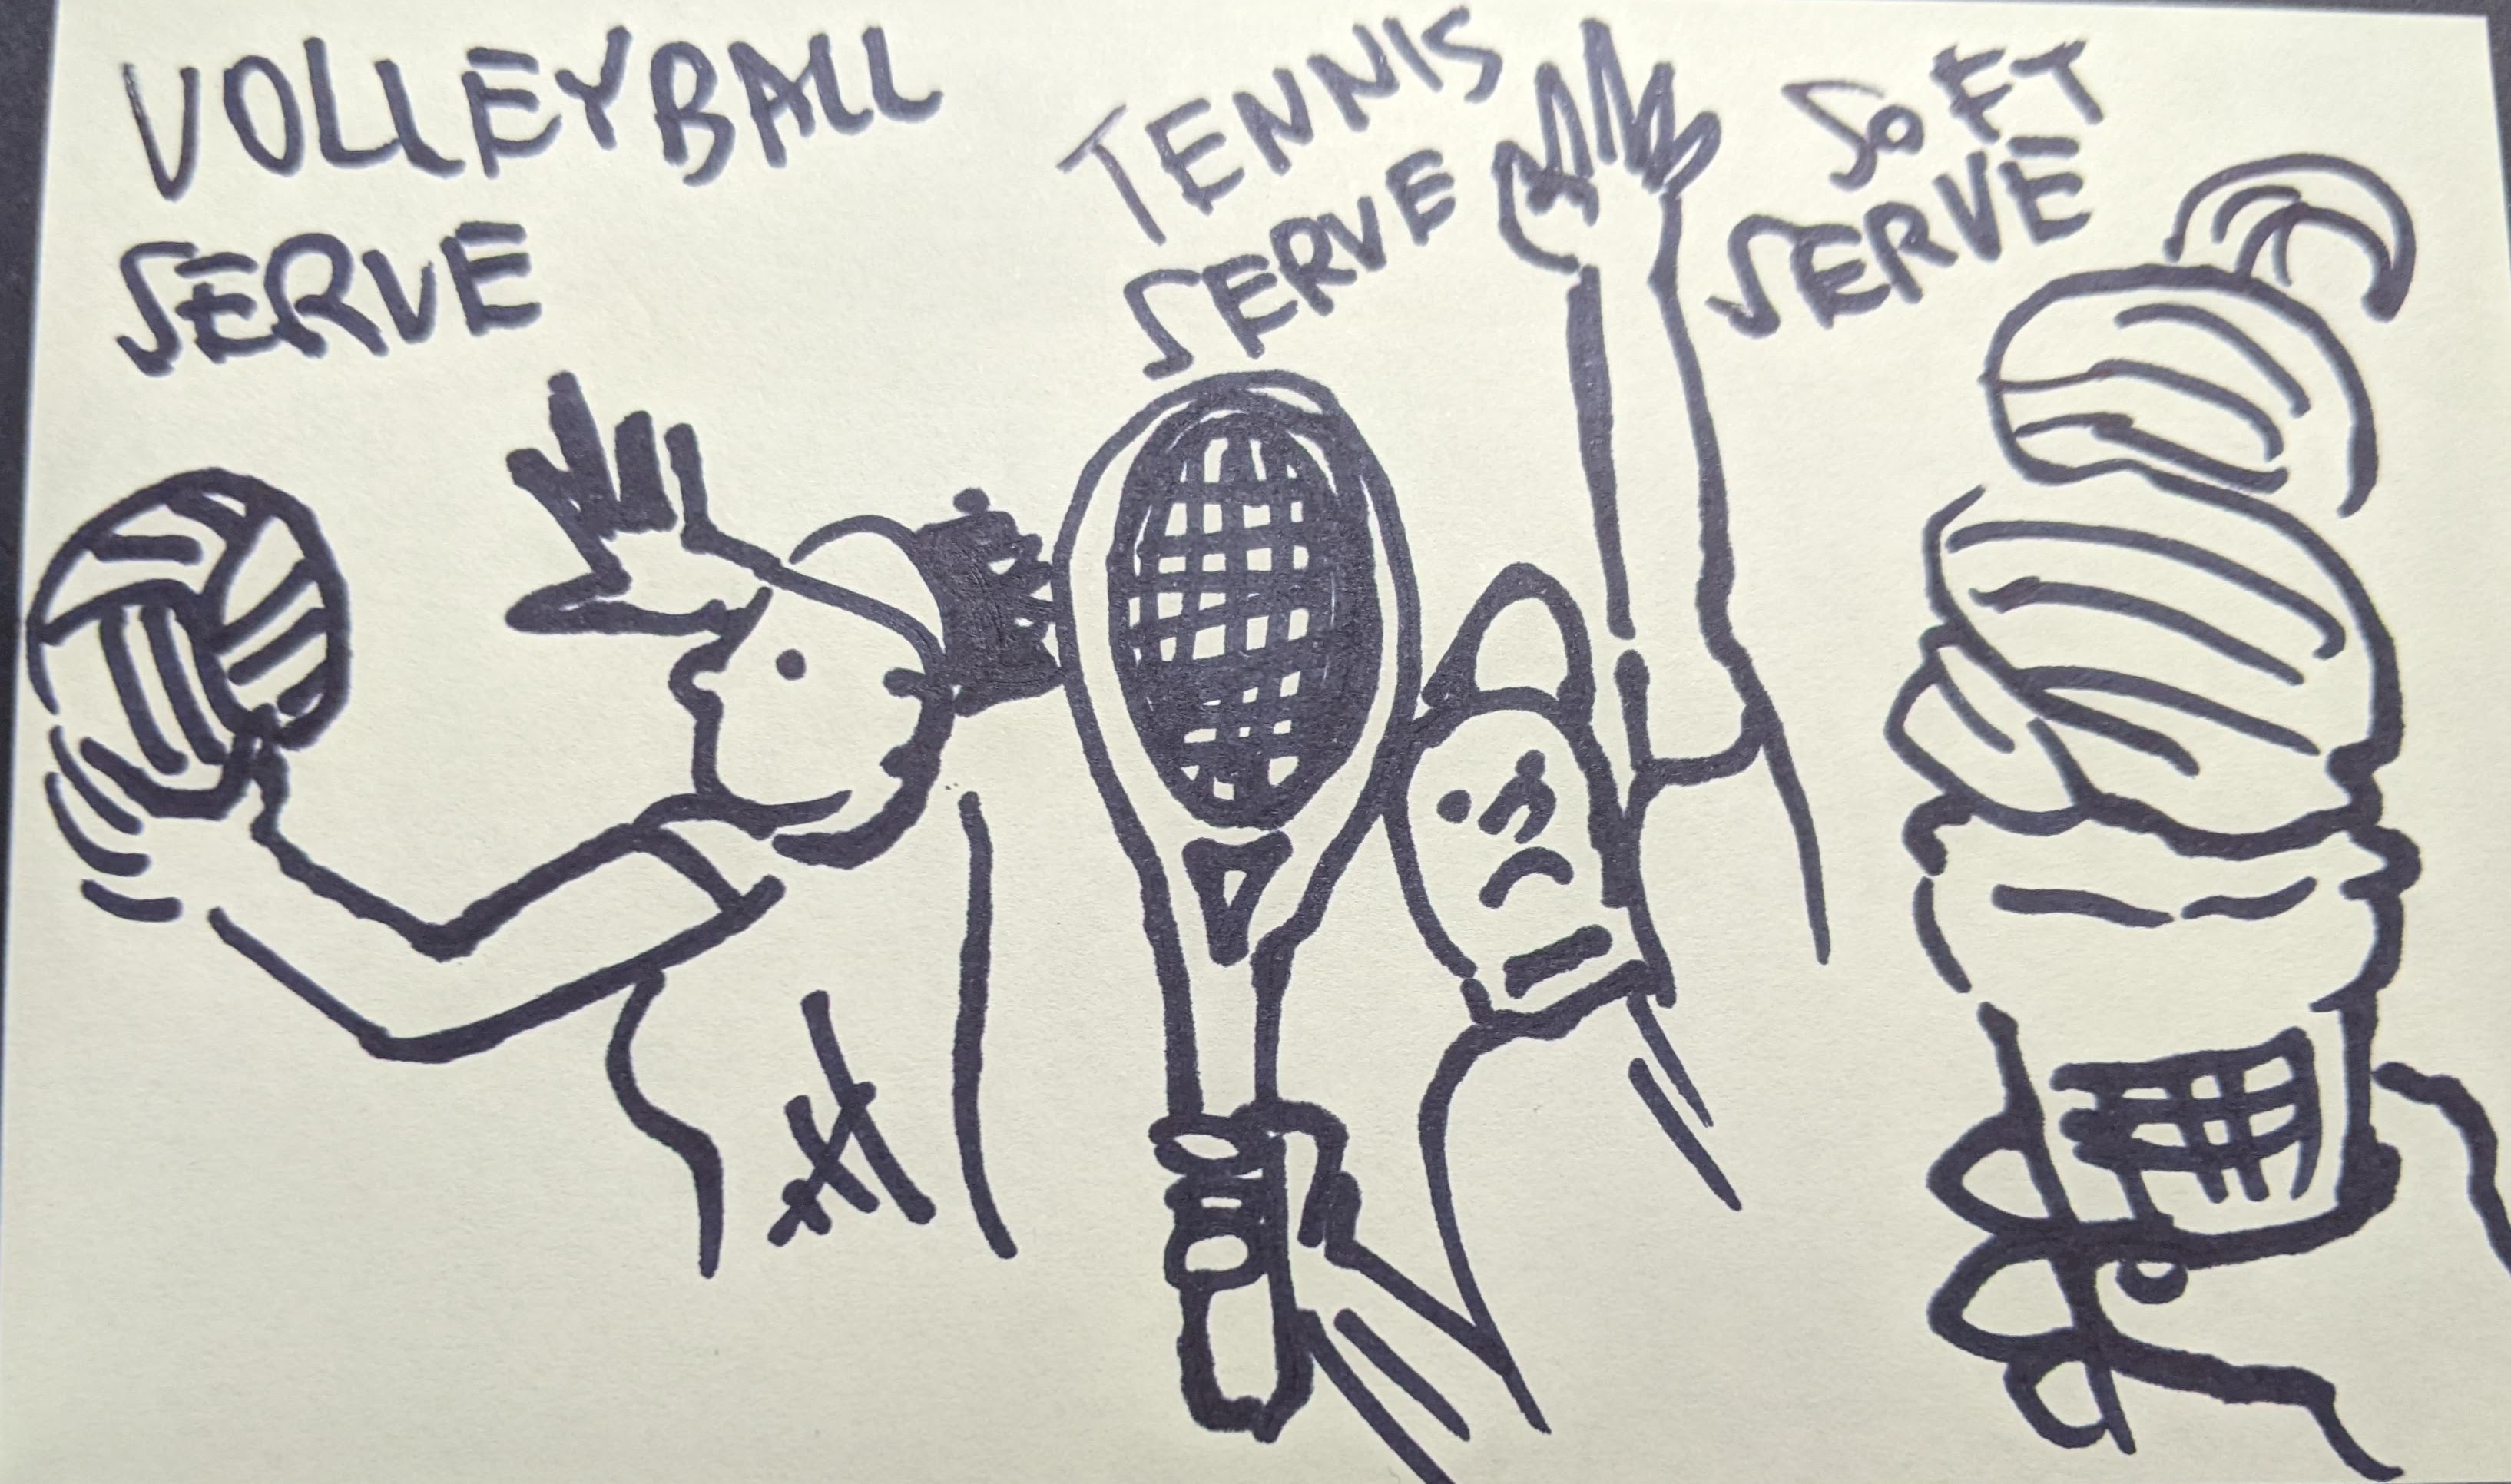 VOLLEYBALL
SERVE
TENNIS
SERVE
SOFT
SERVE